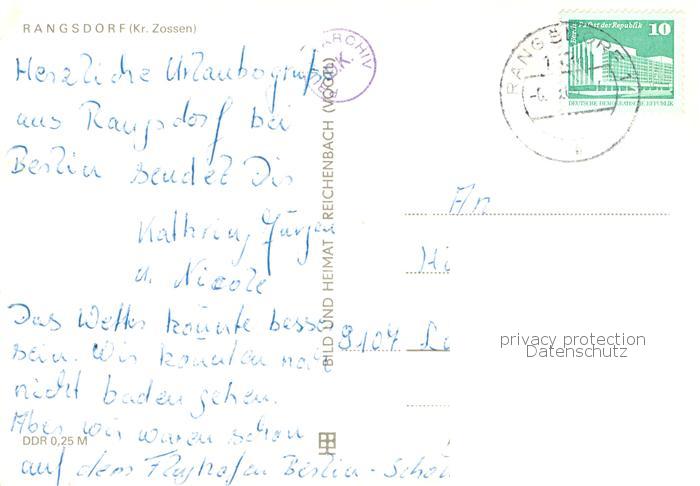 RANGSDORF (Kr. Zossen)
Herzliche Urlaubsgrüße
aus Rangsdorf bei
Berlin sendet Dir
Kathrin, Jürgen
u. Nicole
Das Wetter könnte besser
sein. Wir konnten noch
nicht baden gehen.
Aber wir waren schon
auf dem Flughafen Berlin - Schön
DDR 0,25 M
BILD UND HEIMAT REICHENBACH (VOGTL)
ARCHIV
Palast der Republik
10
DEUTSCHE DEMOKRATISCHE REPUBLIK
RANGSDORF 1
An
Hi
9107 Le
privacy protection
Datenschutz